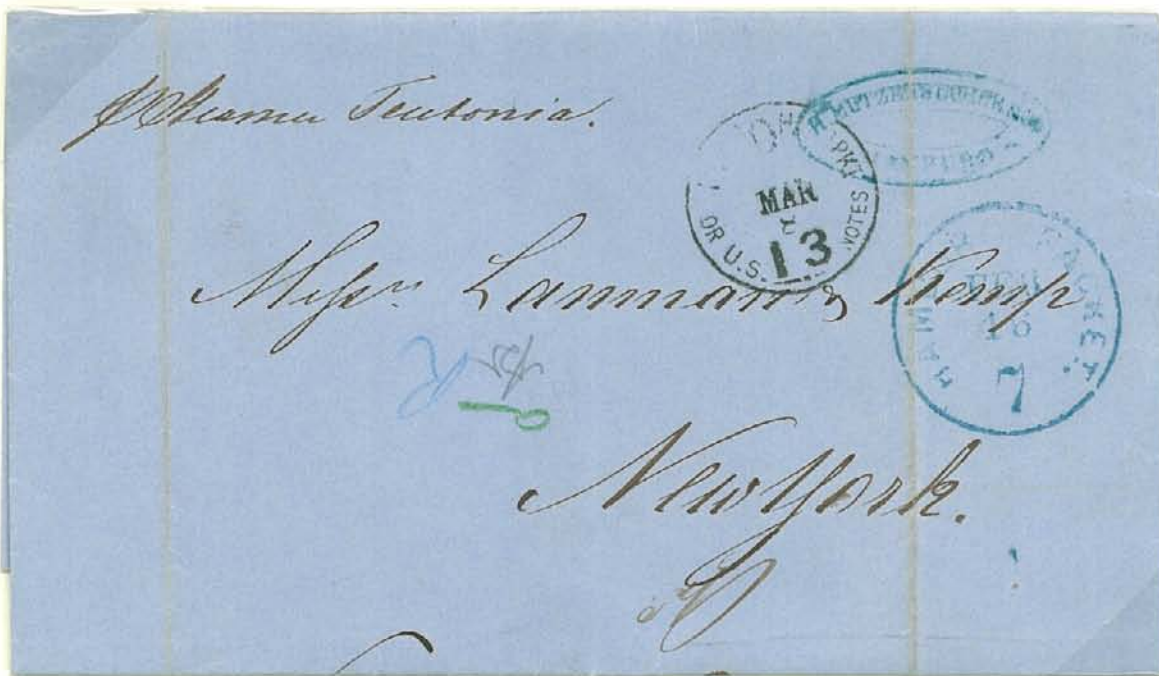 p Steamer Teutonia.
PKT
MAR
13
OR U.S. NOTES
HAMBURG PACKET.
16
7
Messrs Lanman & Kemp
New York.